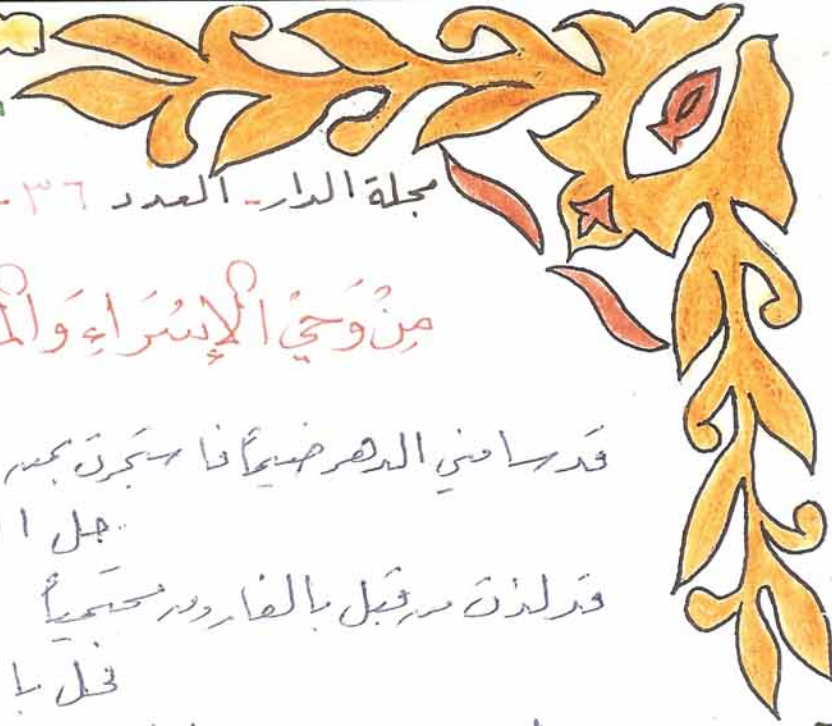 مجلة الدار - العدد ٣٦ -
مِنْ وَحْيِ الْإِسْرَاءِ وَ
قد سامني الدهر ضيماً فاستجرت
جل
قد لذت من قبل بالفاروق محتمياً